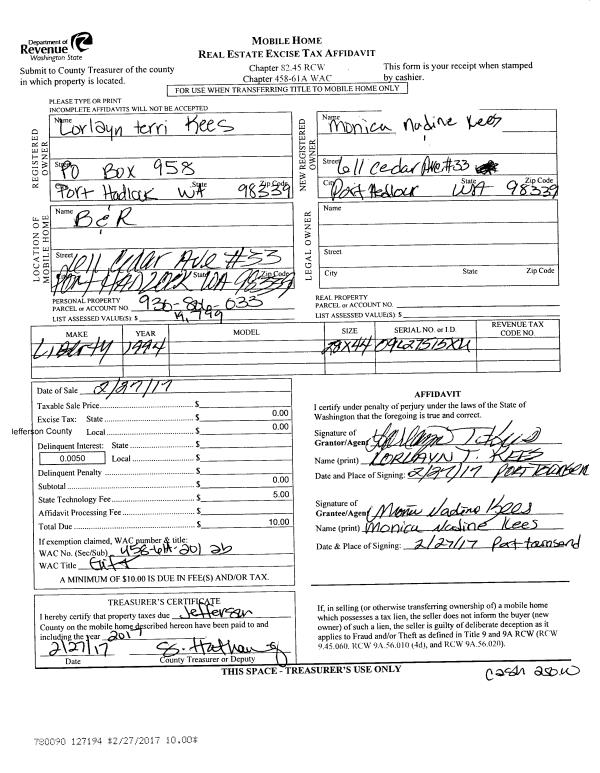 Department of
Revenue
Washington State
MOBILE HOME
REAL ESTATE EXCISE TAX AFFIDAVIT
Submit to County Treasurer of the county
in which property is located.
Chapter 82.45 RCW
Chapter 458-61A WAC
This form is your receipt when stamped
by cashier.
FOR USE WHEN TRANSFERRING TITLE TO MOBILE HOME ONLY
PLEASE TYPE OR PRINT
INCOMPLETE AFFIDAVITS WILL NOT BE ACCEPTED
REGISTERED OWNER
Name Lorlayn terri Kees
Street PO Box 958
Port Hadlock WA State 98339 Zip Code
NEW REGISTERED OWNER
Name Monica Nadine Kees
Street 611 cedar Ave #33
City Port Hadlock State WA Zip Code 98339
LOCATION OF MOBILE HOME
Name B & R
Street 611 Cedar Ave #33
Port Hadlock State WA Zip Code
LEGAL OWNER
Name
Street
City State Zip Code
PERSONAL PROPERTY
PARCEL or ACCOUNT NO.
LIST ASSESSED VALUE(S) $ 14,799
REAL PROPERTY
PARCEL or ACCOUNT NO.
LIST ASSESSED VALUE(S) $
MAKE YEAR MODEL SIZE SERIAL NO. or I.D. REVENUE TAX CODE NO.
Liberty 1994 28X44
Date of Sale 2/27/17
Taxable Sale Price $
Excise Tax: State $ 0.00
Jefferson County Local $ 0.00
Delinquent Interest: State $
0.0050 Local $
Delinquent Penalty $
Subtotal $ 0.00
State Technology Fee $ 5.00
Affidavit Processing Fee $
Total Due $ 10.00
If exemption claimed, WAC number & title:
WAC No. (Sec/Sub) 458-61A-201 2b
WAC Title Gift
A MINIMUM OF $10.00 IS DUE IN FEE(S) AND/OR TAX.
AFFIDAVIT
I certify under penalty of perjury under the laws of the State of
Washington that the foregoing is true and correct.
Signature of
Grantor/Agent
Name (print) LORLAYN T. KEES
Date and Place of Signing: 2/27/17 PORT TOWNSEND
Signature of
Grantee/Agent Monica Nadine Kees
Name (print) Monica Nadine Kees
Date & Place of Signing: 2/27/17 Port townsend
TREASURER'S CERTIFICATE
I hereby certify that property taxes due Jefferson
County on the mobile home described hereon have been paid to and
including the year 2017
2/27/17
Date County Treasurer or Deputy
If, in selling (or otherwise transferring ownership of) a mobile home
which possesses a tax lien, the seller does not inform the buyer (new
owner) of such a lien, the seller is guilty of deliberate deception as it
applies to Fraud and/or Theft as defined in Title 9 and 9A RCW (RCW
9.45.060, RCW 9A.56.010 (4d), and RCW 9A.56.020).
THIS SPACE - TREASURER'S USE ONLY
cash
780090 127194 $2/27/2017 10.00$